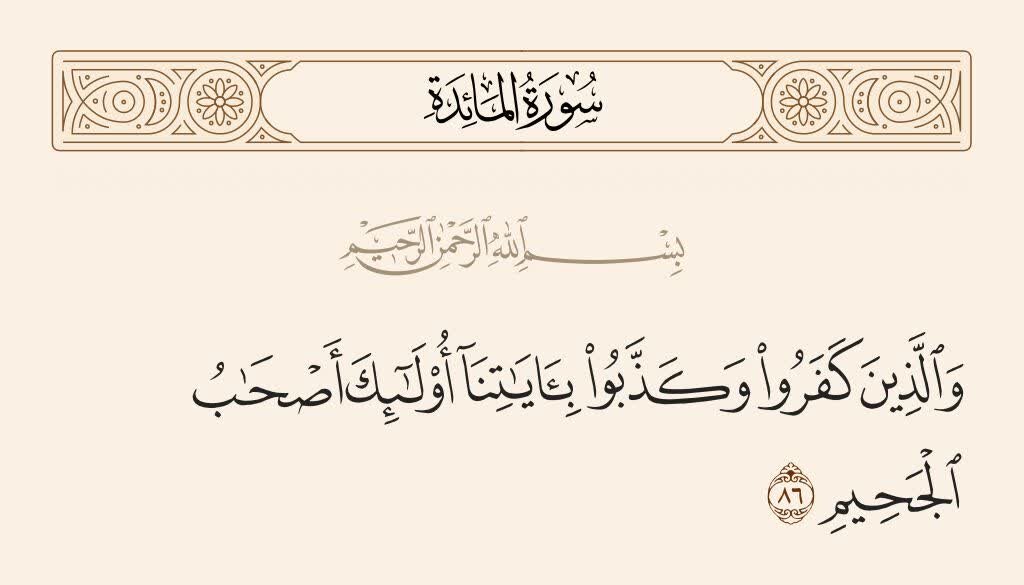 سُورَةُ المَائِدَةِ
بِسْمِ ٱللَّهِ ٱلرَّحْمَٰنِ ٱلرَّحِيمِ
وَٱلَّذِينَ كَفَرُوا۟ وَكَذَّبُوا۟ بِـَٔايَـٰتِنَآ أُو۟لَـٰٓئِكَ أَصْحَـٰبُ
ٱلْجَحِيمِ ٨٦